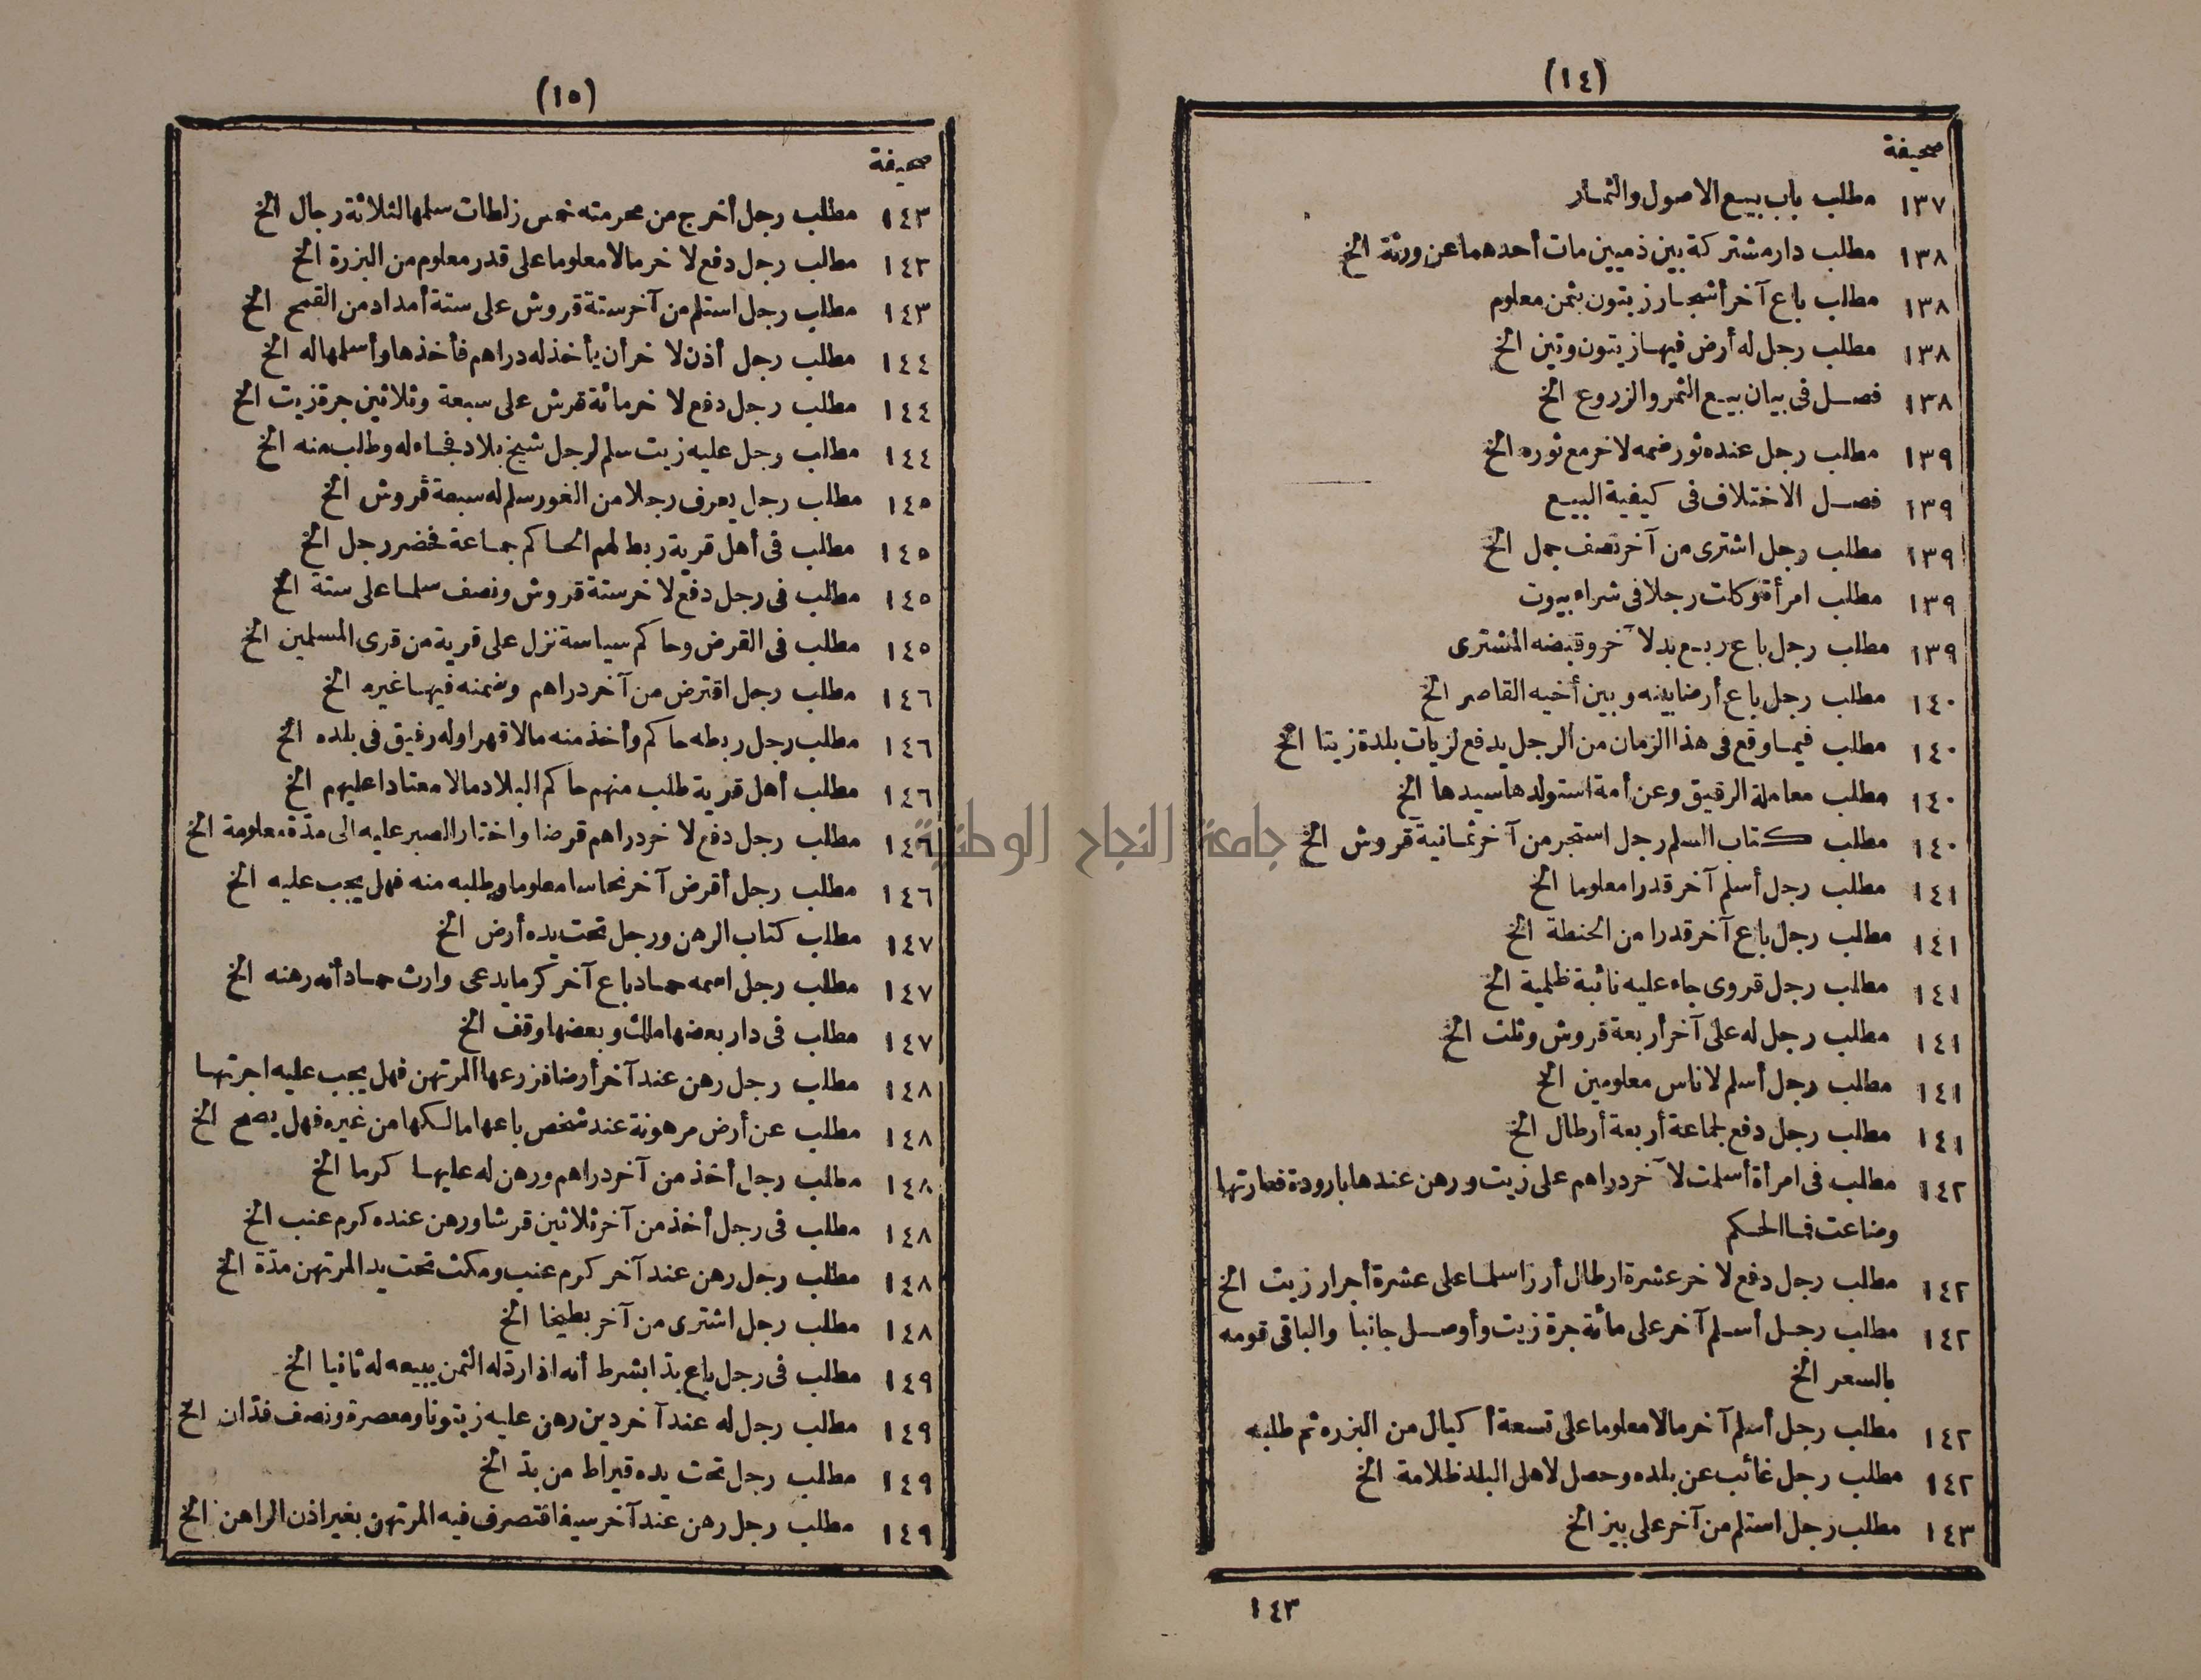 (١٤)
صحيفة
١٣٧ مطلب باب بيع الاصول والثمار
١٣٨ مطلب دار مشتركة بين ذميين مات أحدهما عن ورثة الخ
١٣٨ مطلب باع آخر أشجار زيتون بثمن معلوم
١٣٨ مطلب رجل له أرض فيها زيتون وتين الخ
١٣٨ فصل فى بيان بيع الثمر والزروع الخ
١٣٩ مطلب رجل عنده ثور ضمه لا خر مع ثوره الخ
١٣٩ فصل الاختلاف فى كيفية البيع
١٣٩ مطلب رجل اشترى من آخر نصف جمل الخ
١٣٩ مطلب امرأة وكلت رجلا فى شراء بيوت
١٣٩ مطلب رجل باع ربع بد لآخر وقبضه المشترى
١٤٠ مطلب رجل باع أرضا بينه وبين أخيه القاصر الخ
١٤٠ مطلب فيما وقع فى هذا الزمان من الرجل يدفع لزيات بلدة زيتا الخ
١٤٠ مطلب معاملة الرقيق وعن أمة استولدها سيدها الخ
١٤٠ مطلب كتاب السلم رجل استجر من آخر ثمانية قروش الخ
١٤١ مطلب رجل أسلم آخر قدرا معلوما الخ
١٤١ مطلب رجل باع آخر قدرا من الحنطة الخ
١٤١ مطلب رجل قروى جاء عليه نائبة ظلمية الخ
١٤١ مطلب رجل له على آخر أربعة قروش وثلث الخ
١٤١ مطلب رجل أسلم لاناس معلومين الخ
١٤١ مطلب رجل دفع لجماعة أربعة أرطال الخ
١٤٢ مطلب فى امرأة أسلمت لآخر دراهم على زيت ورهن عندها بارودة فعارتها
وضاعت فما الحكم
١٤٢ مطلب رجل دفع لا خر عشرة ارطال أرز اسلما على عشرة أجرار زيت الخ
١٤٢ مطلب رجل أسلم آخر على مائة جرة زيت وأوصل جانبا والباقى قومه
بالسعر الخ
١٤٢ مطلب رجل أسلم آخر مالا معلوما على تسعة أكيال من البزره ثم طلبه
١٤٢ مطلب رجل غائب عن بلده وحصل لاهل البلد ظلامة الخ
١٤٣ مطلب رجل استلم من آخر على بيز الخ
١٤٣
(١٥)
صحيفة
١٤٣ مطلب رجل أخرج من محرمته خمس زلطات سلمها لثلاثة رجال الخ
١٤٣ مطلب رجل دفع لا خر مالا معلوما على قدر معلوم من البزرة الخ
١٤٣ مطلب رجل استلم من آخر ستة قروش على ستة أمداد من القمح الخ
١٤٤ مطلب رجل أذن لا خر أن يأخذ له دراهم فأخذها وأسلمها له الخ
١٤٤ مطلب رجل دفع لا خر مائة قرش على سبعة وثلاثين جرة زيت الخ
١٤٤ مطلب رجل عليه زيت سلم لرجل شيخ بلاد فجاه له وطلب منه الخ
١٤٥ مطلب رجل يعرف رجلا من الغور سلم له سبعة قروش الخ
١٤٥ مطلب فى أهل قرية ربط لهم الحاكم جماعة فحضر رجل الخ
١٤٥ مطلب فى رجل دفع لا خر ستة قروش ونصف سلما على ستة الخ
١٤٥ مطلب فى القرض وحاكم سياسة نزل على قرية من قرى المسلمين الخ
١٤٦ مطلب رجل اقترض من آخر دراهم وضمنه فيها غيره الخ
١٤٦ مطلب رجل ربطه حاكم وأخذ منه مالا قهرا وله رفيق فى بلده الخ
١٤٦ مطلب أهل قرية طلب منهم حاكم البلاد مالا معتادا عليهم الخ
١٤٦ مطلب رجل دفع لا خر دراهم قرضا واختار الصبر عليه الى مدّة معلومة الخ
١٤٦ مطلب رجل أقرض آخر نحاسا معلوما ويطلبه منه فهل يجب عليه الخ
١٤٧ مطلب كتاب الرهن ورجل تحت يده أرض الخ
١٤٧ مطلب رجل اسمه حماد باع آخر كرما يدعى وارث حماد أنه رهنه الخ
١٤٧ مطلب فى دار بعضها ملك وبعضها وقف الخ
١٤٨ مطلب رجل رهن عند آخر أرضا فزرعها المرتهن فهل يجب عليه اجرتها
١٤٨ مطلب عن أرض مرهونة عند شخص باعها مالكها من غيره فهل يصح الخ
١٤٨ مطلب رجل أخذ من آخر دراهم ورهن له عليها كرما الخ
١٤٨ مطلب فى رجل أخذ من آخر ثلاثين قرشا ورهن عنده كرم عنب الخ
١٤٨ مطلب رجل رهن عند آخر كرم عنب ومكث تحت يد المرتهن مدّة الخ
١٤٨ مطلب رجل اشترى من آخر بطيخا الخ
١٤٩ مطلب فى رجل باع بدا بشرط أنه اذا ردّ له الثمن يبيعه له ثانيا الخ
١٤٩ مطلب رجل له عند آخر دين رهن عليه زيتونا ومعصرة ونصف فدّان الخ
١٤٩ مطلب رجل تحت يده قيراط من بدّ الخ
١٤٩ مطلب رجل رهن عند آخر سيفا فتصرف فيه المرتهن بغير اذن الراهن الخ
جامعة النجاح الوطنية